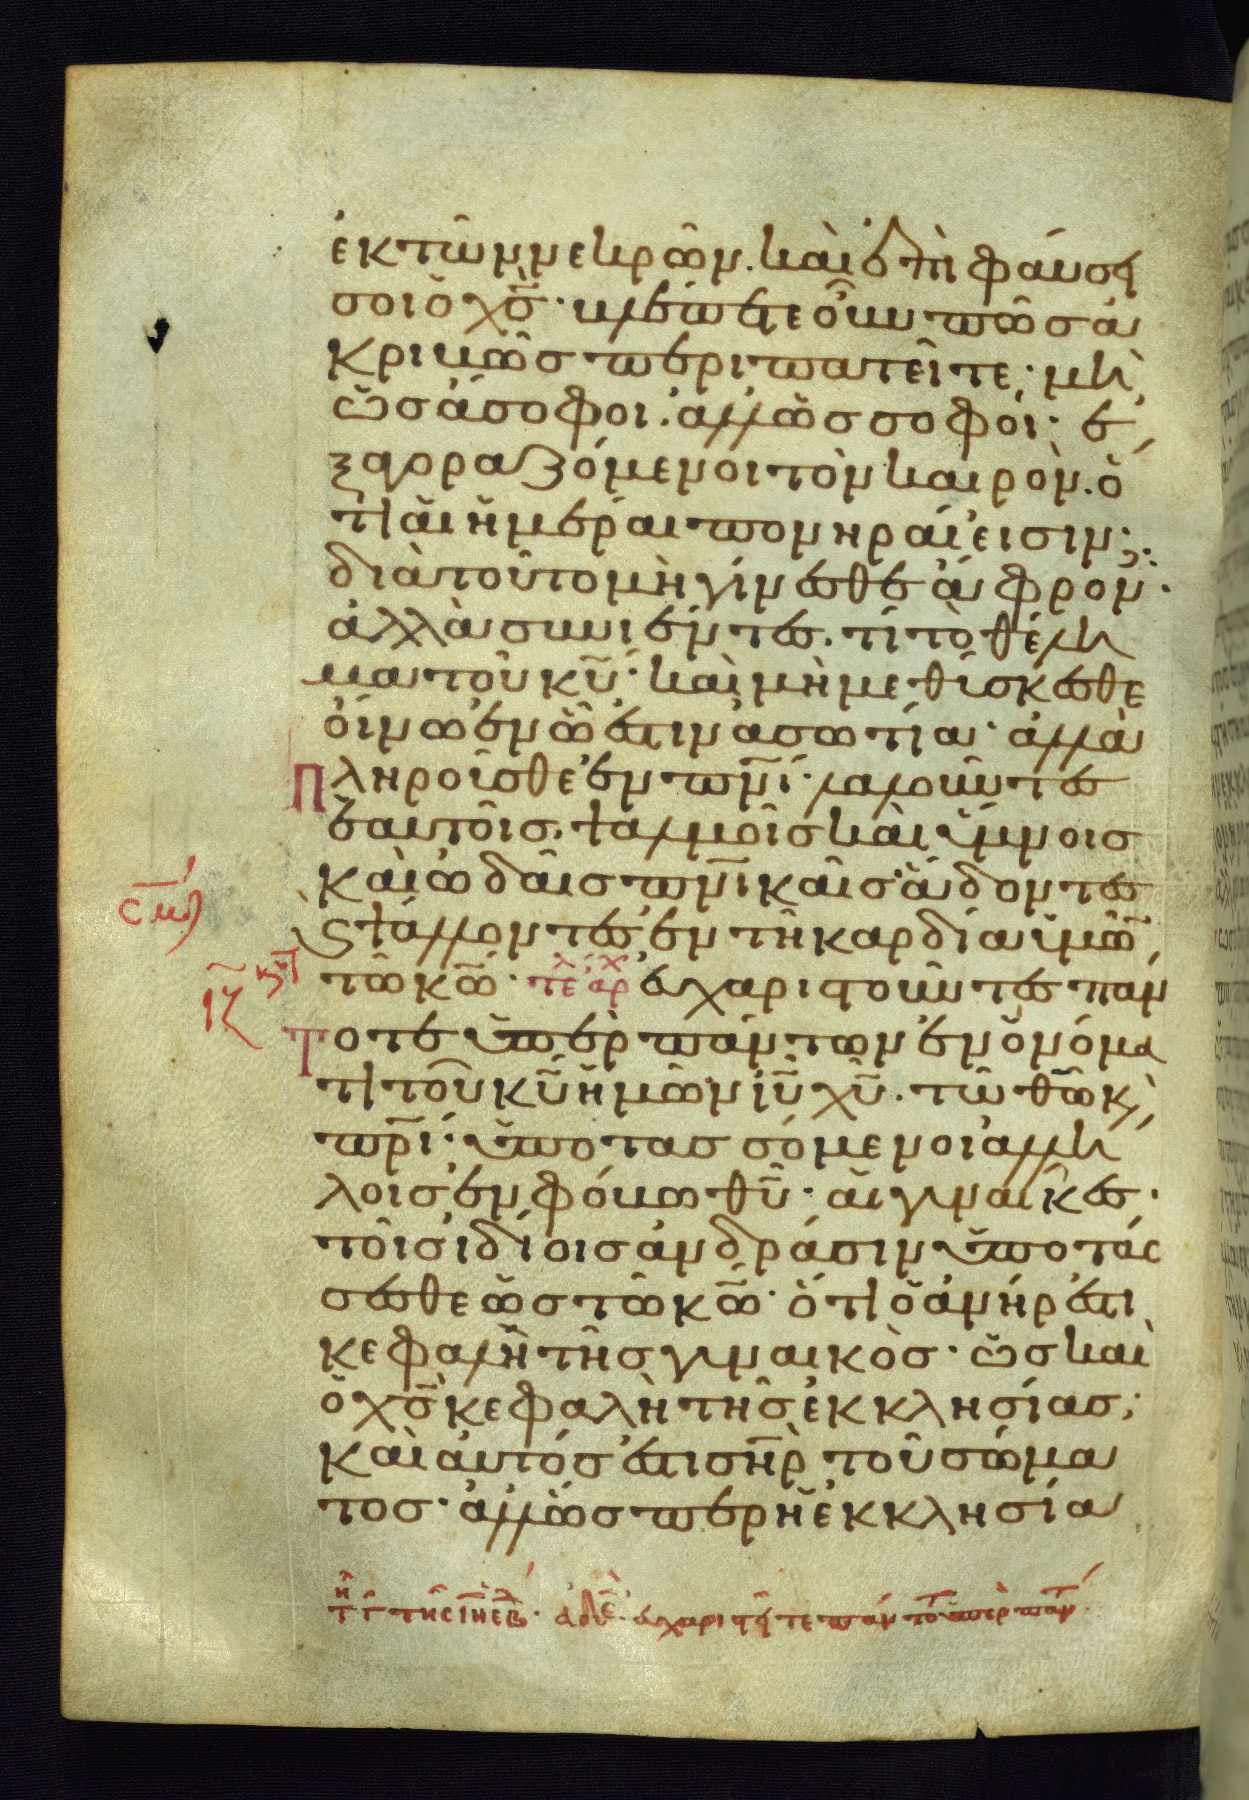 ἐκ τῶν νεκρῶν. καὶ ἐπιφαύσει
σοι ὁ χς̄· βλέπετε οὖν πῶς ἀ
κριβῶς περιπατεῖτε· μὴ
ὡς ἄσοφοι. ἀλλ ὡς σοφοί· ἐ
ξαγοραζόμενοι τὸν καιρὸν. ὅ
τι αἱ ἡμέραι πονηραί εἰσιν·
διὰ τοῦτο μὴ γίνεσθε ἄφρον·
ἀλλὰ συνιέντες. τί τὸ θέλη
μα τοῦ κῡ· καὶ μὴ μεθύσκεσθε
οἴνω ἐν ὧ ἐστιν ἀσωτία· ἀλλὰ
πληροῦσθε ἐν πνῑ· λαλοῦντες
ἑαυτοῖς. ψαλμοῖς καὶ ὕμνοις
καὶ ὠδαῖς πνῑκαῖς· ἄδοντες
ϗ ψάλλοντες ἐν τῆ καρδία ὑμῶ
τῶ κω̄· τε αρ εὐχαριστοῦντες πάν
τοτε ὑπὲρ πάντων ἐν ὀνόμα
τι τοῦ κῡ ἡμῶν ιῡ χῡ. τῶ θω̄ κὶ
πρῑ· ὑποτασσόμενοι ἀλλή
λοις ἐν φόβω θῡ· αἱ γυναῖκες·
τοῖς ἰδίοις ἀνδράσιν ὑποτάσ
σεσθε ὡς τῶ κω̄· ὅτι ὁ ἀνήρ ἐστι
κεφαλὴ τῆς γυναικὸς· ὡς καὶ
ὁ χς̄ κεφαλὴ τῆς ἐκκλησίας·
καὶ αὐτός ἐστι σηρ̄ τοῦ σώμα
τος· ἀλλ ὥσπερ ἡ ἐκκλησία
τῆ γ̄ τῆς ιη εβ· ἀδε. εὐχαριστεῖτε πάντο ὑπὲρ παν